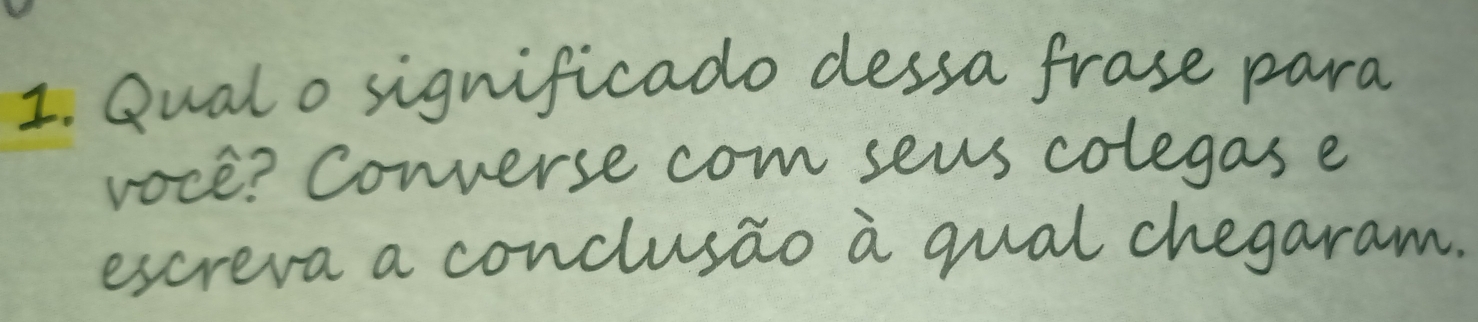 1. Qual o significado dessa frase para
você? Converse com seus colegas e
escreva a conclusão à qual chegaram.